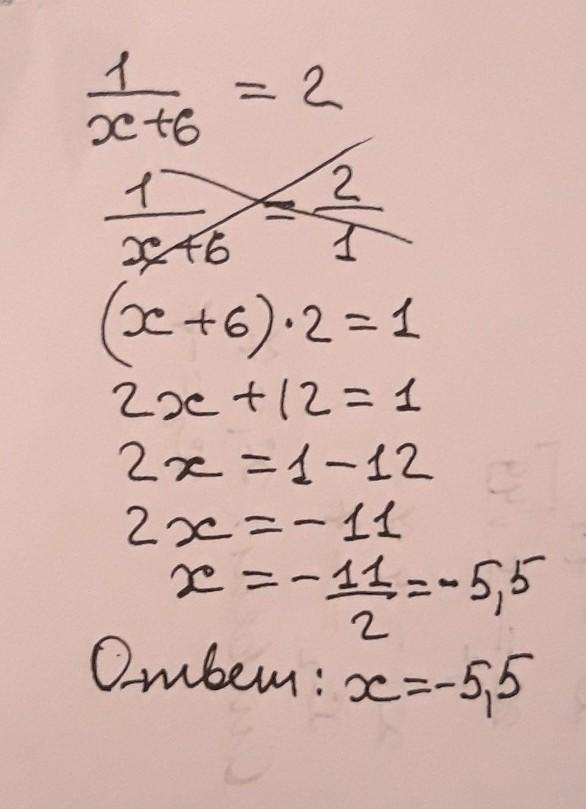 1/(x+6) = 2
1/(x+6) = 2/1
(x+6)·2=1
2x+12=1
2x=1-12
2x=-11
x=-11/2=-5,5
Ответ: x=-5,5